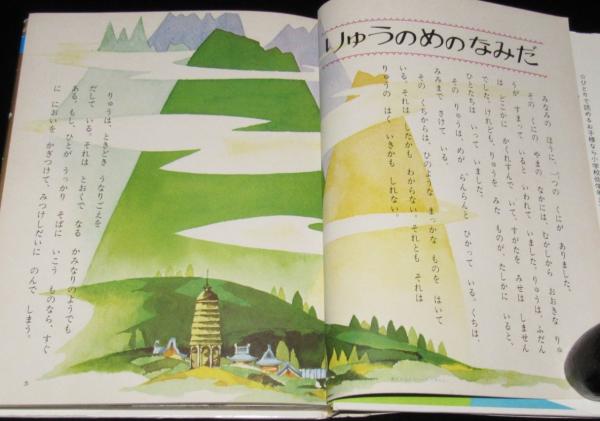 りゅうのめのなみだ
みなみの ほうに、一つの くにが ありました。
その くにの やまの なかには、むかしから おおきな りゅ
うが すまって いると いわれて いました。りゅうは、ふだん
は どこかに かくれすんで いて、すがたを みせは しません
でした。けれども、りゅうを みた ものが、たしかに いると、
ひとたちは いって いました。
その りゅうは、めが らんらんと ひかって いる。くちは、
みみまで さけて いる。
その くちからは、ひのような まっかな ものを はいて
いる。それは したかも わからない。それとも それは
りゅうの はく いきかも しれない。
りゅうは、ときどき うなりごえを
だして いる。それは とおくで なる かみなりのようでも
ある。もし、ひとが うっかり そばに いこう ものなら、すぐ
に においを かぎつけて、みつけしだいに のんで しまう。